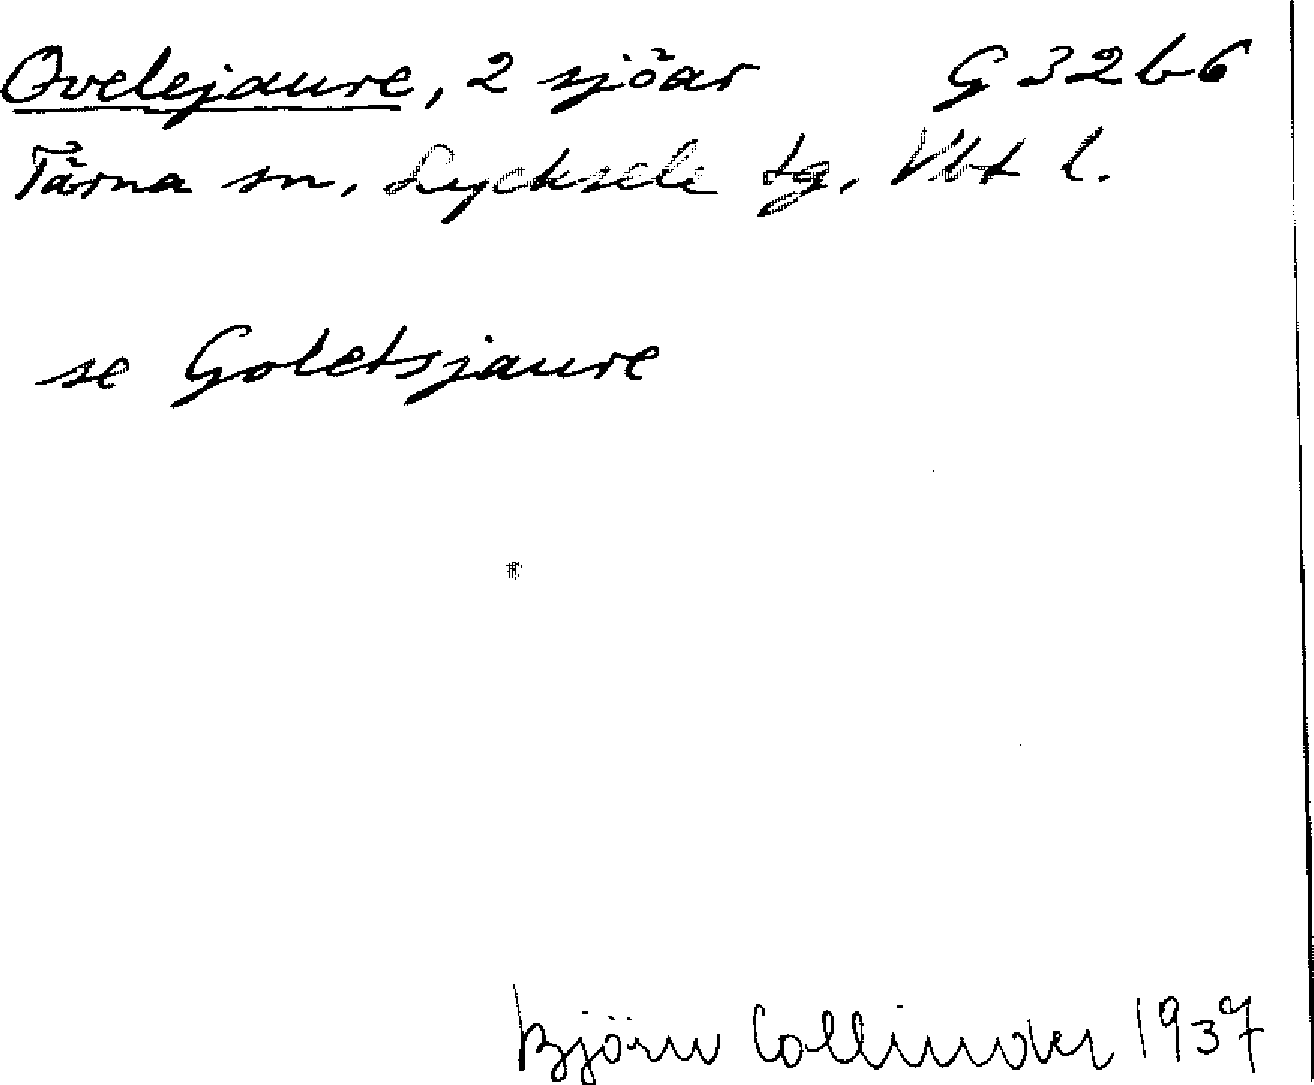 Ovelejaure, 2 sjöar G 32 b 6
Tärna sn, Lycksele tg, Vbt l.
se Goletsjaure
Björn Collinder 1937